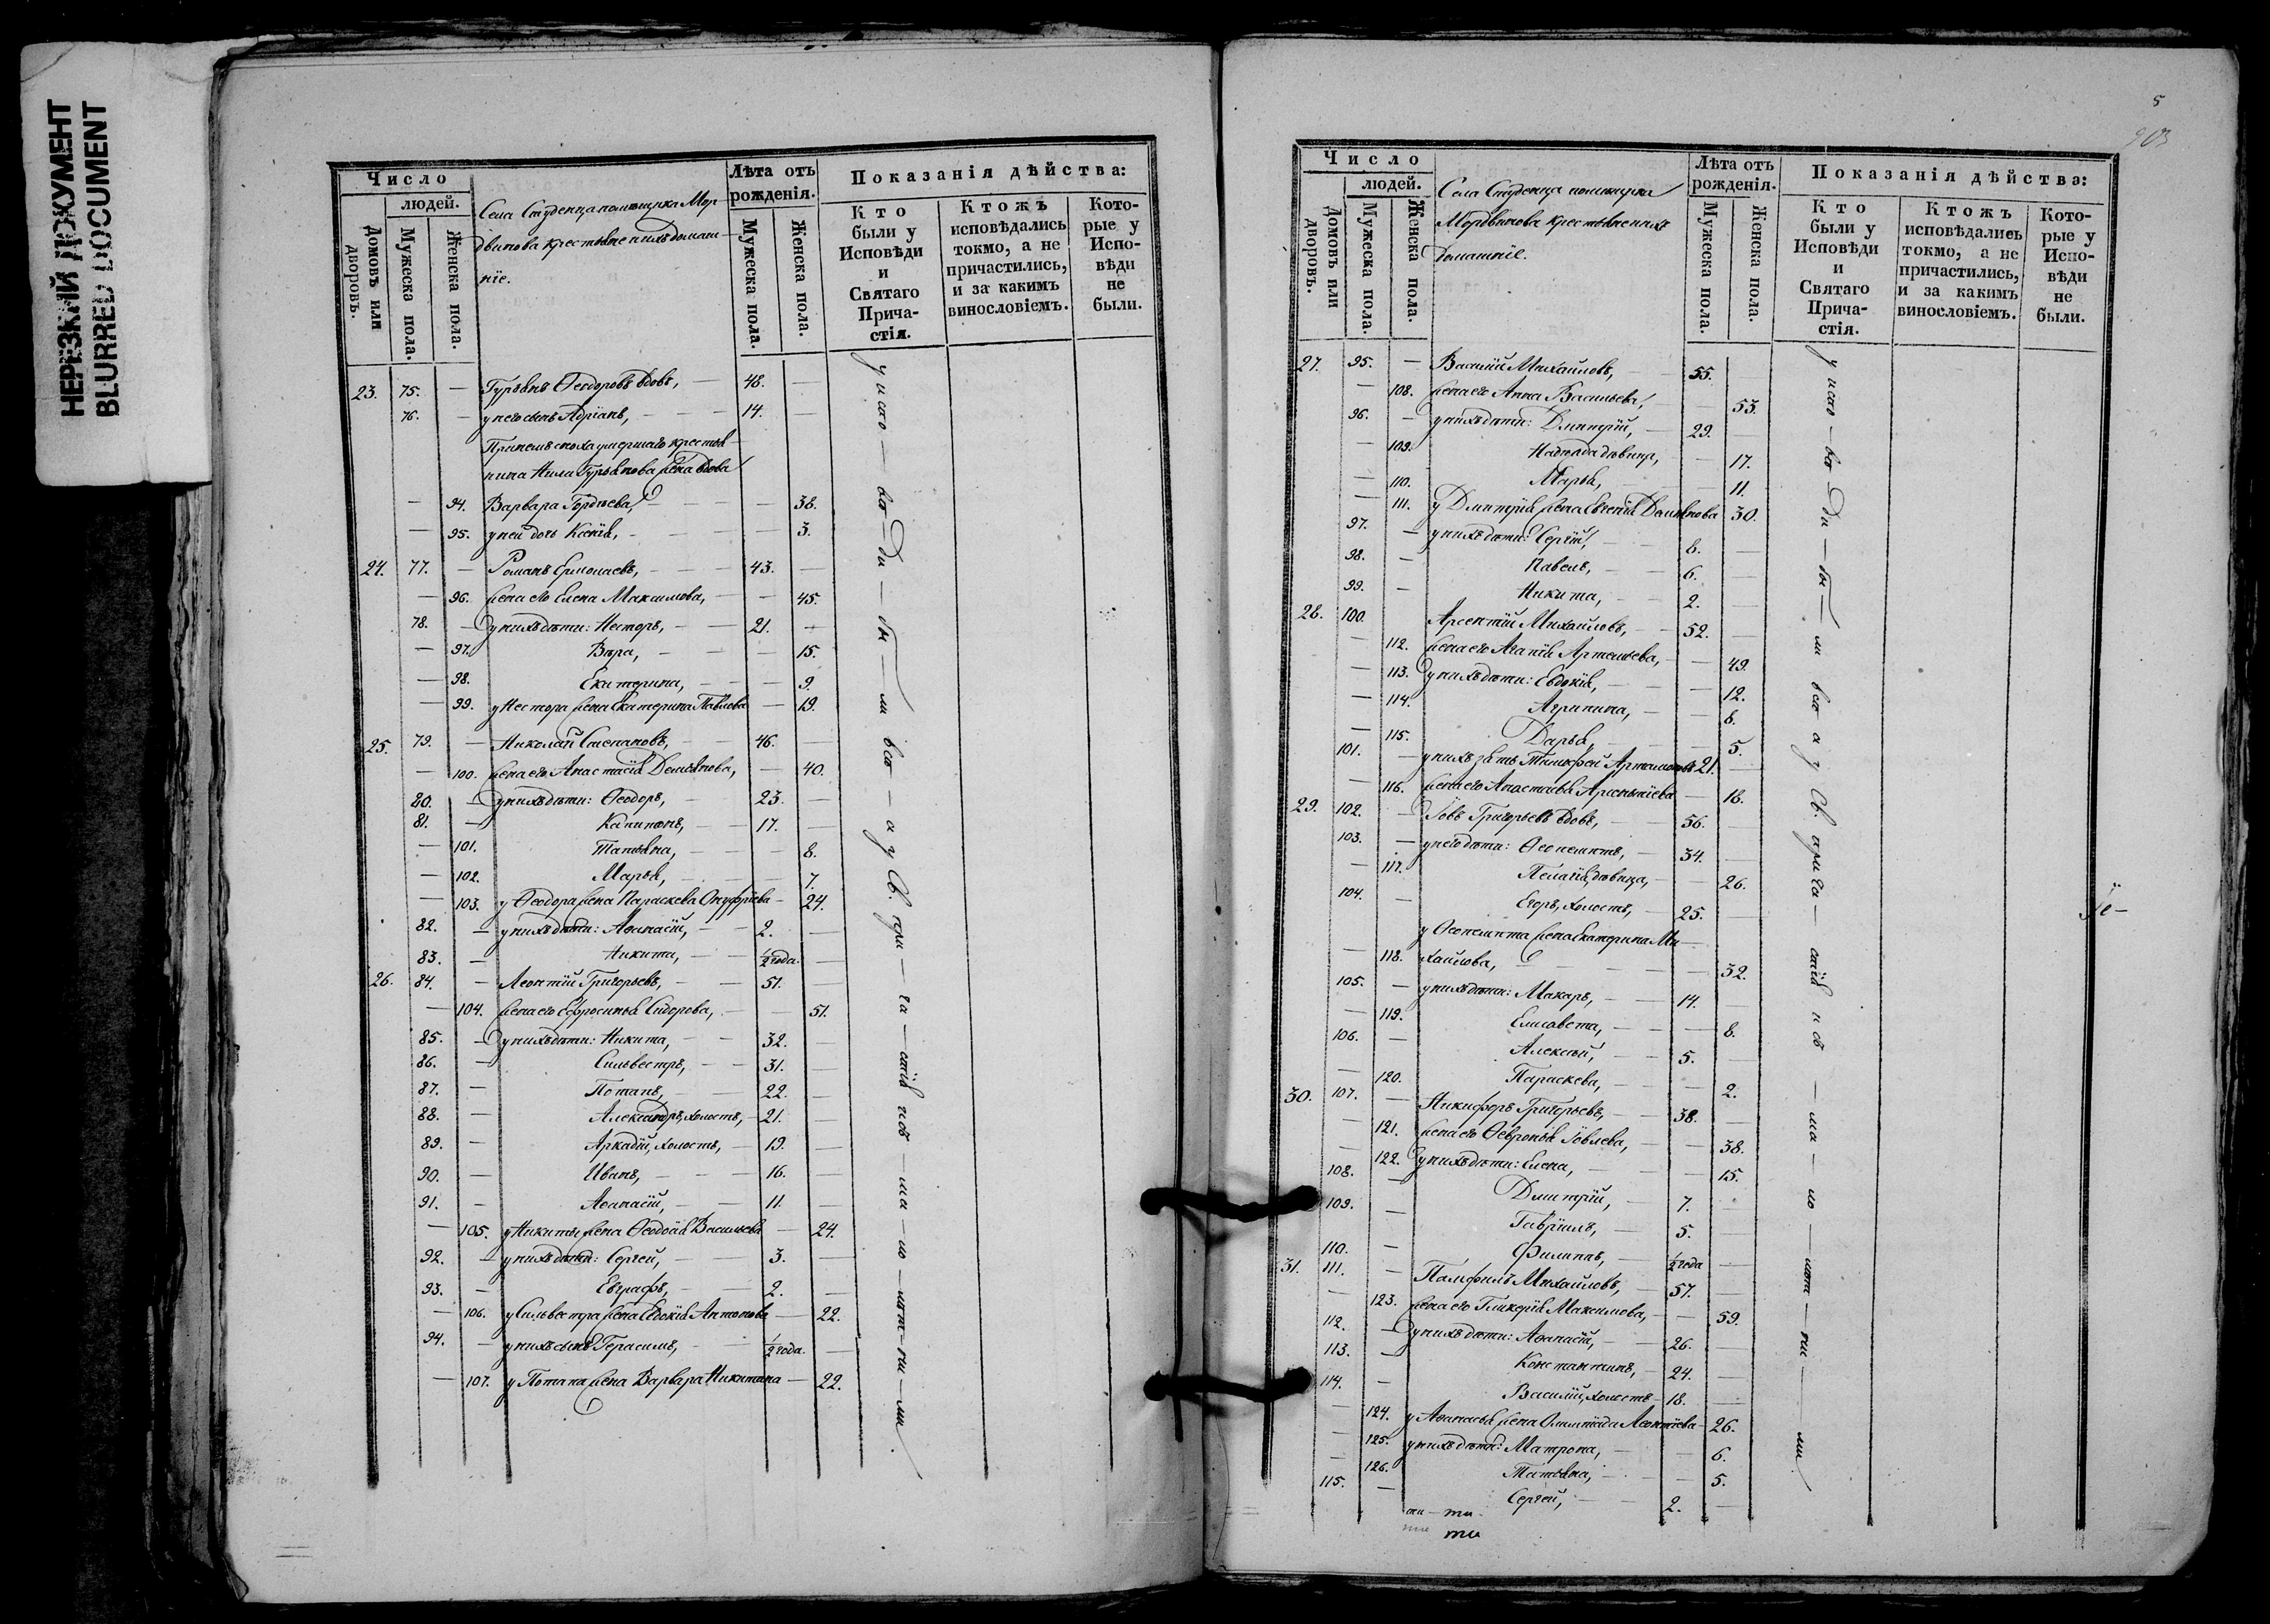 НЕРЕЗКИЙ ДОКУМЕНТ
BLURRED DOCUMENT
Число
людей.
Домовъ или дворовъ.
Мужеска пола.
Женска пола.
Села Студенца помѣщика Мор-
двинова крестьяне и ихъ домаш-
нiе.
Лѣта отъ рожденія.
Мужеска пола.
Женска пола.
Показанія дѣйства:
Кто были у Исповѣди и Святаго Причастія.
Ктожъ исповѣдались токмо, а не причастились, и за какимъ винословіемъ.
Которые у Исповѣди не были.
23. 75. — Гурьянъ Ѳеодоровъ вдовъ, — 48. —
76. — у него сынъ Адрiанъ, — 14. —
умершаго крестья-
нина Нила Гурьянова жена вдова
— 94. Варвара Гордѣева, — — 38.
— 95. у ней дочь Ксенiя, — — 3.
24. 77. — Романъ Ермолаевъ, — 43. —
— 96. жена его Елена Максимова, — — 45.
78. — у нихъ дѣти: Несторъ, — 21. —
— 97. Вѣра, — — 15.
— 98. Екатерина, — — 9.
— 99. у Нестора жена Екатерина Павлова — 19.
25. 79. — Николай Степановъ, — 46. —
— 100. жена его Анастасiя Демьянова, — 40.
80. — у нихъ дѣти: Ѳеодоръ, — 23. —
81. — Капитонъ, — 17. —
— 101. Татьяна, — — 8.
— 102. Марья, — — 7.
— 103. у Ѳеодора жена Параскева Онуфрiева — 24.
82. — у нихъ дѣти: Аѳанасiй, — 2. —
83. — Никита, — 1/2 года. —
26. 84. — Леонтiй Григорьевъ, — 51. —
— 104. жена его Ефросинья Сидорова, — — 51.
85. — у нихъ дѣти: Никита, — 32. —
86. — Сильвестръ, — 31. —
87. — Потапъ, — 22. —
88. — Александръ, холостъ, — 21. —
89. — Аркадiй, холостъ, — 19. —
90. — Иванъ, — 16. —
91. — Аѳанасiй, — 11. —
— 105. у Никиты жена Ѳеодосiя Васильева — 24.
92. — у нихъ дѣти: Сергей, — 3. —
93. — Евграфъ, — 2. —
— 106. у Сильвестра жена Евдокiя Антонова — 22.
94. — у нихъ сынъ Герасимъ, — 1/2 года. —
— 107. у Потапа жена Варвара Никитина — 22.
5
903
Число
людей.
Домовъ или дворовъ.
Мужеска пола.
Женска пола.
Села Студенца помѣщика
Мордвинова крестьяне и ихъ
домашнiе.
Лѣта отъ рожденія.
Мужеска пола.
Женска пола.
Показанія дѣйства:
Кто были у Исповѣди и Святаго Причастія.
Ктожъ исповѣдались токмо, а не причастились, и за какимъ винословіемъ.
Которые у Исповѣди не были.
27. 95. — Василiй Михайловъ, — 55. —
— 108. жена его Анна Васильева, — — 53.
96. — у нихъ дѣти: Дмитрiй, — 29. —
— 109. Наталья дѣвица, — 17.
— 110. Марья, — — 11.
— 111. у Дмитрiя жена Евгенiя Демьянова 30.
97. — у нихъ дѣти: Сергiй, — 8. —
98. — Павелъ, — 6. —
99. — Никита, — 2. —
28. 100. Арсентiй Михайловъ, — 52. —
— 112. жена его Агапiя Артемьева, — — 49.
— 113. у нихъ дѣти: Евдокiя, — — 12.
— 114. Агрипина, — — 8.
— 115. Дарья, — — 5.
101. — у нихъ зять Тимофей Артамоновъ 21. —
— 116. жена его Анастасiя Арсентiева — 18.
29. 102. — Iовъ Григорьевъ вдовъ, — 56. —
103. — у него дѣти: Ѳеопемптъ, — 34. —
— 117. Пелагiя, дѣвица, — — 26.
104. — Егоръ, холостъ, — 25. —
у Ѳеопемпта жена Екатерина Ми-
— 118. хайлова, — — 32.
105. — у нихъ дѣти: Макаръ, — 14. —
— 119. Елисавета, — — 8.
106. — Алексѣй, — 5. —
— 120. Параскева, — — 2.
30. 107. — Никифоръ Григорьевъ, — 38. —
— 121. жена его Ѳевронья Iовлева, — — 38.
— 122. у нихъ дѣти: Елена, — — 15.
108. — Дмитрiй, — 7. —
109. — Гаврiилъ, — 5. —
110. — Филиппъ, — 1/2 года —
31. 111. — Памфилъ Михайловъ, — 57. —
— 123. жена его Гликерiя Максимова, — — 59.
112. — у нихъ дѣти: Аѳанасiй, — 26. —
113. — Константинъ, — 24. —
114. — Василiй, холостъ — 18. —
— 124. у Аѳанасья жена Олимпiада Леонтiева — 26.
— 125. у нихъ дѣти: Матрона, — — 6.
— 126. Татьяна, — — 5.
115. — Сергей, — 2. —